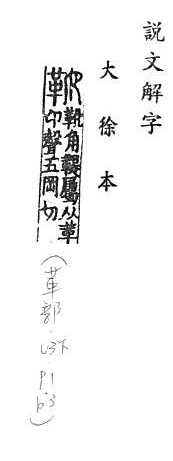 説文解字
大徐本
䩕
䩕角鞮屬从革
卬聲五岡切
(革部.
3下
P1
b.3)